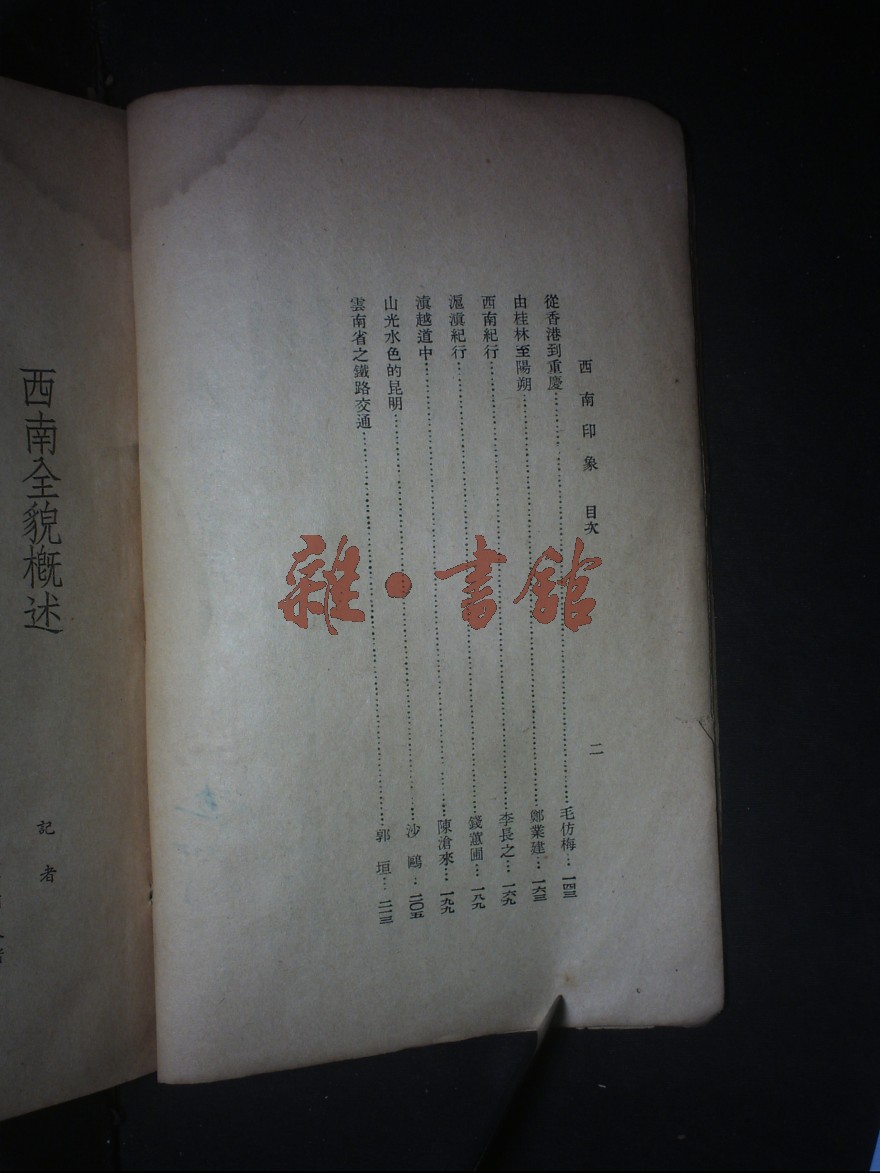 西南印象 目次 二
從香港到重慶……毛仿梅…一四三
由桂林至陽朔……鄭業建…一六三
西南紀行……李長之…一六九
滬滇紀行……錢蕙圃…一八九
滇越道中……陳滄來…一九九
山光水色的昆明……沙鷗…二〇五
雲南省之鐵路交通……郭垣…二一三
西南全貌概述
記者
雜·書館